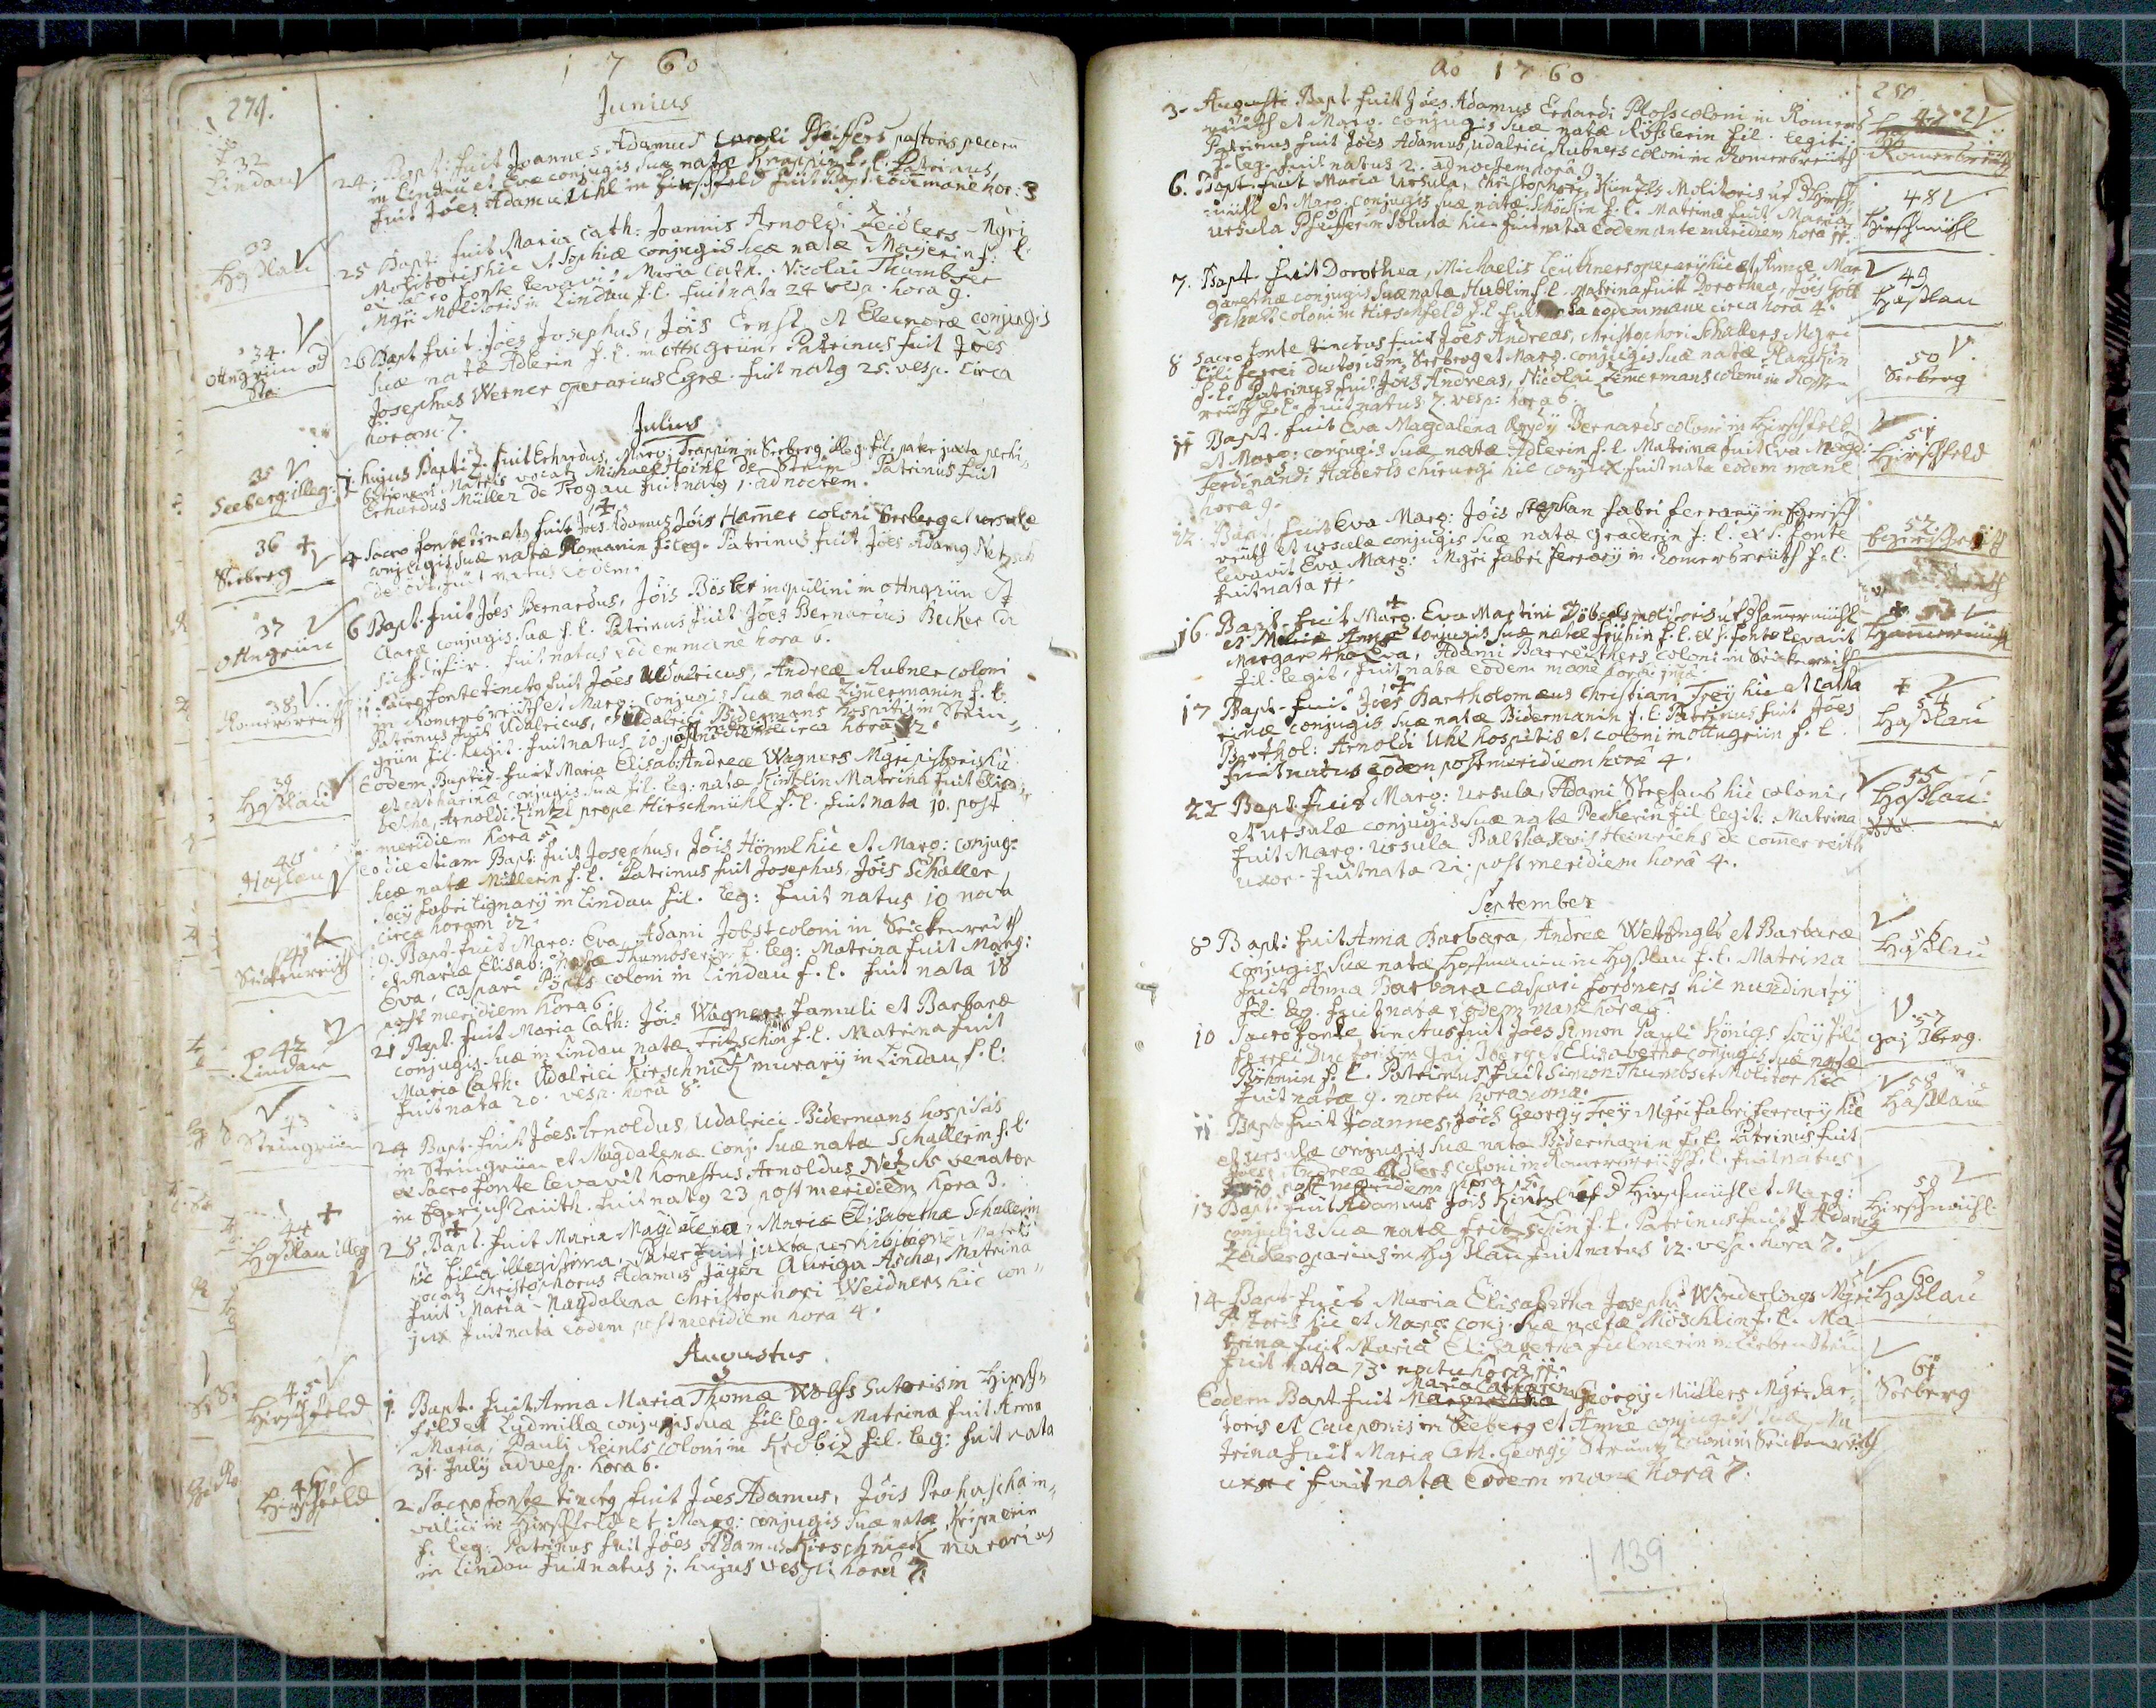 1760
279.
Junius
32
Lindau
24. Bapt: fuit Joannes Adamus Caroli Pfeiffers pastoris pecorum
in Lindau et Evæ conjugis suæ natæ Knappin f. l. Patrinus
fuit Jões Adamus Uhl in Hirschfeld fuit nat9 eodem mane hor: 3
33
Haßlau
25 Bapt: fuit Maria Cath: Joannis Arnoldi Zeidlers Mgri
Molitoris hic et Sophiæ conjugis suæ natæ Mayerin f: l:
ex sacro fonte levavit Maria Cath. Nicolai Thumbser
Mgri Molitoris in Lindau f. l. fuit nata 24 vesp. hora 9.
34.
Ottngrün
26 Bapt. fuit Jões Josephus, Jõis Ernst et Eleonoræ conjugis
suæ natæ Adlerin f. l. in Ottngrün, Patrinus fuit Jões
Josephus Werner operarius Egræ. fuit nat9 25. vesp. circa
horam 7.
Julius
35
Seeberg illeg:
1 hujus Baptiz. fuit Erhardus, Marg: Trappin in Seeberg illeg. fil. pater juxta perhi
bitionem Matris vocat9 Michael Heinl de Stein Patrinus fuit
Erhardus Müller de Rogau fuit nat9 1. ad noctem.
36 +
Seeberg
4 Sacro fonte tinct9 fuit Jões Adamus Jõis Hamer coloni Seeberg et Ursulæ
conjugis suæ natæ Romanin f: leg. Patrinus fuit Jões Adam9 Netsch
de ibid. fuit natus eodem.
37
Ottngrün
6 Bapt. fuit Jões Bernardus, Jõis Bösler inquilini in Ottngrün et
Claræ conjugis suæ f. l. Patrinus fuit Jões Bernardus Becker
fuit natus eodem mane hora 6.
38
Romersreuth
11 Sacro fonte tinct9 fuit Jões Udalricus, Andreæ Rubner coloni
in Romersreuth et Marg: conjugis suæ natæ Zimermanin f. l.
Patrinus fuit Udalricus, Udalrici Bidermans hospitis in Stein
grün fil. legit. fuit natus 10 post meridiem circa hora 12.
39
Haßlau
Eodem Baptiz. fuit Maria Elisab: Andreæ Wagners Mgri pistoris hic
et Catharina conjugis suæ fil. leg: natæ Kintzlin Matrina fuit Elisa
betha, Arnoldi Kintzl prope Hirschmühl f. l. fuit nata 10. post
meridiem hora 5.
40
Haslau
eodie etiam Bapt: fuit Josephus, Jõis Hönnl hic et Marg: conjug:
suæ natæ Müllerin f. l. Patrinus fuit Josephus, Jõis Schaller
Socij fabri lignarij in Lindau fil. leg: fuit natus 10 nocte
circa horam 12
41
Seickenreith
19. Bapt. fuit Marg: Eva, Adami Jobst coloni in Seickenreuth
et Mariæ Elisab: natæ Thumbserin f. leg: Matrina fuit Marg:
Eva, Caspari coloni in Lindau f. l. fuit nata 18
post meridiem hora 6.
42
Lindau
21 Bapt. fuit Maria Cath: Jõis Wagners famuli et Barbaræ
conjugis suæ in Lindau natæ Fritzschin f. l. Matrina fuit
Maria Cath: Udalrici Kirschnick murarij in Lindau f. l:
fuit nata 20. vesp. hora 8.
43
Steingrün
24 Bapt. fuit Jões Arnoldus Udalrici Bidermans hospitis
in Steingrün et Magdalena conj. suæ nata Schallerin f. l.
ex sacro fonte levavit honestus Arnoldus Netsch venator
in Egerischreuth. fuit nat9 23 post meridiem hora 3.
44 +
Haßlau illeg
28 Bapt. fuit Maria Magdalena, Maria Elisabethæ Schallerin
hic filia illegitima, Pater fuit juxta perhibitione Matris
vocat9 Christophorus Adamus Jäger auriga Aschæ, Matrina
fuit Maria Magdalena Christophori Weidners hic con
jux fuit nata eodem post meridiem hora 4.
Augustus
45
Hirschfeld
1. Bapt. fuit Anna Maria Thomæ Wolfs sutoris in Hirsch
feld et Ludmillæ conjugis suæ fil. leg. Matrina fuit Anna
Maria, Pauli Reinls coloni in Krobiz fil. leg: fuit nata
31. July ad vesp. hora 6.
46
Hirschfeld
2 Sacro fonte tinct9 fuit Jões Adamus, Jõis Prohascha in
valici in Hirschfeld et Marg: conjugis suæ natæ Kripnerin
f. leg: Patrinus fuit Jões Adamus Kirschnick murarius
in Lindau fuit natus 1. hujus vesp: hora 7.
Ao 1760
280
3. Augusti Bapt. fuit Jões Adamus Erhardi Ploss coloni in Romers
reuth et Marg. conjugis suæ natæ Rösslerin fil. legiti:
Patrinus fuit Jões Adamus, Udalrici Rubners coloni in Romersreuth
f. leg. fuit natus 2. ad noctem hora 9
47
Romersreuth
6. Bapt. fuit Maria Ursula, Christophori Küntzls Molitoris uf d Hirsch
mühl et Marg. conjugis suæ natæ Schöckin f. l. Matrina fuit Maria
Ursula Pfeifferin soluta hic fuit nata eodem ante meridiem hora 11.
48
Hirschmühl
7. Bapt. fuit Dorothea, Michaelis Leuthners operarij hic et Annæ Mar
garethæ conjugis suæ natæ Hüblin f. l. Matrina fuit Dorothea, Jõis Gott
schalk coloni in Hirschfeld f. l. fuit nata eodem mane circa hora 4.
49
Haßlau
8 Sacro fonte tinctus fuit Jões Andreas, Christophori Schallers Mgri
fili ferrei ductoris in Seeberg et Marg. conjugis suæ natæ Planckin
f. l. Patrinus fuit Jões Andreas, Nicolai Zimermans coloni in Rossen
reuth f. l. fuit natus 7. vesp: hora 6.
50
Seeberg
11 Bapt. fuit Eva Magdalena Egydij Bernards coloni in Hirschfeld
et Marg: conjugis suæ natæ Adlerin f. l. Matrina fuit Eva Magd:
Ferdinandi Haberls chirurgi hic conjux fuit nata eodem mane
hora 9.
51
Hirschfeld
12. Bapt. fuit Eva Marg: Jõis Stephan fabri ferrarij in Egerisch
reuth et Ursulæ conjugis suæ natæ Graderin f: l. ex s. fonte
levavit Eva Marg: Mgri fabri ferrarij in Romersreuth f. l.
fuit nata 11.
52
Egerischreuth
16. Bapt. fuit Marg. Eva Martini Döbels molitoris uf d Hamermühl
et Mariæ Annæ conjugis suæ natæ Frühin f. l. ex s. fonte levavit
Margaretha Eva, Adami Barreuthers coloni in Seickenreuth
fil. legit. fuit nata eodem mane hora
+ 53
Hamermühl
17 Bapt. fuit Jões Bartholomæus Christiani Frey hic et Catha
rinæ conjugis suæ natæ Bidermanin f. l: Patrinus fuit Jões
Barthol: Arnoldi Uhl hospitis et coloni in Ottngrün f. l.
fuit natus eodem post meridiem hora 4.
+ 54
Haßlau
22 Bapt. fuit Marg: Ursula, Adami Stephans hic coloni,
et Ursulæ conjugis suæ natæ Peckerin fil legit: Matrina
fuit Marg. Ursula Balthasaris Heinrichs de Comerreith
uxor. fuit nata 21. post meridiem hora 4.
55
Haßlau
September
8 Bapt: fuit Anna Barbara Andreæ Wettengls et Barbaræ
conjugis suæ natæ Hoffmanin in Haßlau f. l. Matrina
fuit Anna Barbara Caspari Fordners hic nundinarij
fil. leg. fuit nata eodem mane hora 6.
56
Haßlau
10 Sacro fonte tinctus fuit Jões Simon Pauli Königs Socij fili
ferrei ductoris in Gaj Jberg et Elisabetha conjugis suæ natæ
Böhmin f. l. Patrinus fuit Simon Thumbser Molitor hic
fuit nata 9. noctu hora nona.
57
Gaj Jberg.
11 Bapt. fuit Joannes, Jõis Georgij Frey Mgri fabri ferrarij hic
et Ursulæ conjugis suæ natæ Bidermanin f. l. Patrinus fuit
Jões, Andreæ Adlers coloni in Romersreuth f. l. fuit natus
10 post meridiem hora
58
Haßlau
13 Bapt. fuit Adamus Jõis Kintzl uf d Hirschmühl et Marg:
conjugis suæ natæ Fritzschin f. l. Patrinus fuit Adam9
Zeidler operarius in Haßlau fuit natus 12. vesp. hora 7.
59
Hirschmühl
14 Bapt. fuit Maria Elisabetha Josephi Winderlings Mgri
hic et Marg: conj. suæ natæ Möschlin f. l. Ma
trina fuit Maria Elisabetha Fulnerin in Liebenstein
fuit nata 13. noctu hora 11.
60
Haßlau
Maria Catharina
Eodem Bapt fuit Margaretha Georgij Müllers Mgri Sar
toris et Cauponis in Seeberg et Annæ conjugis suæ Ma
trina fuit Maria Cath. Georgij Strunz coloni in Seickenreuth
uxor fuit nata eodem mane hora 7.
61
Seeberg
139